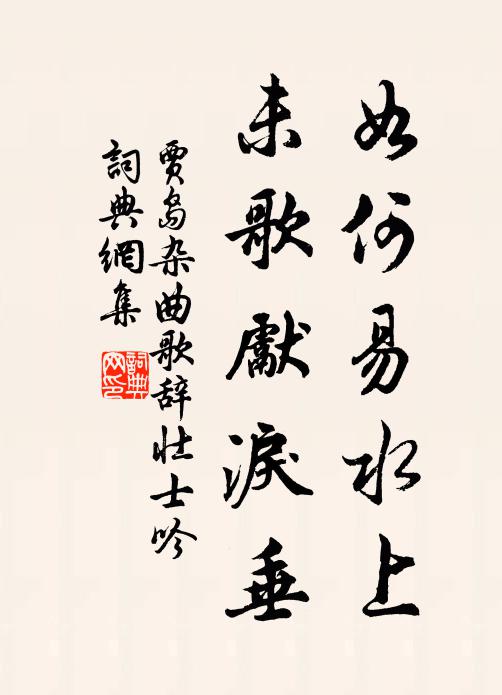 如何易水上
未歌獻淚垂
賈岛杂曲歌辞壮士吟
詞典網集
詞典网印